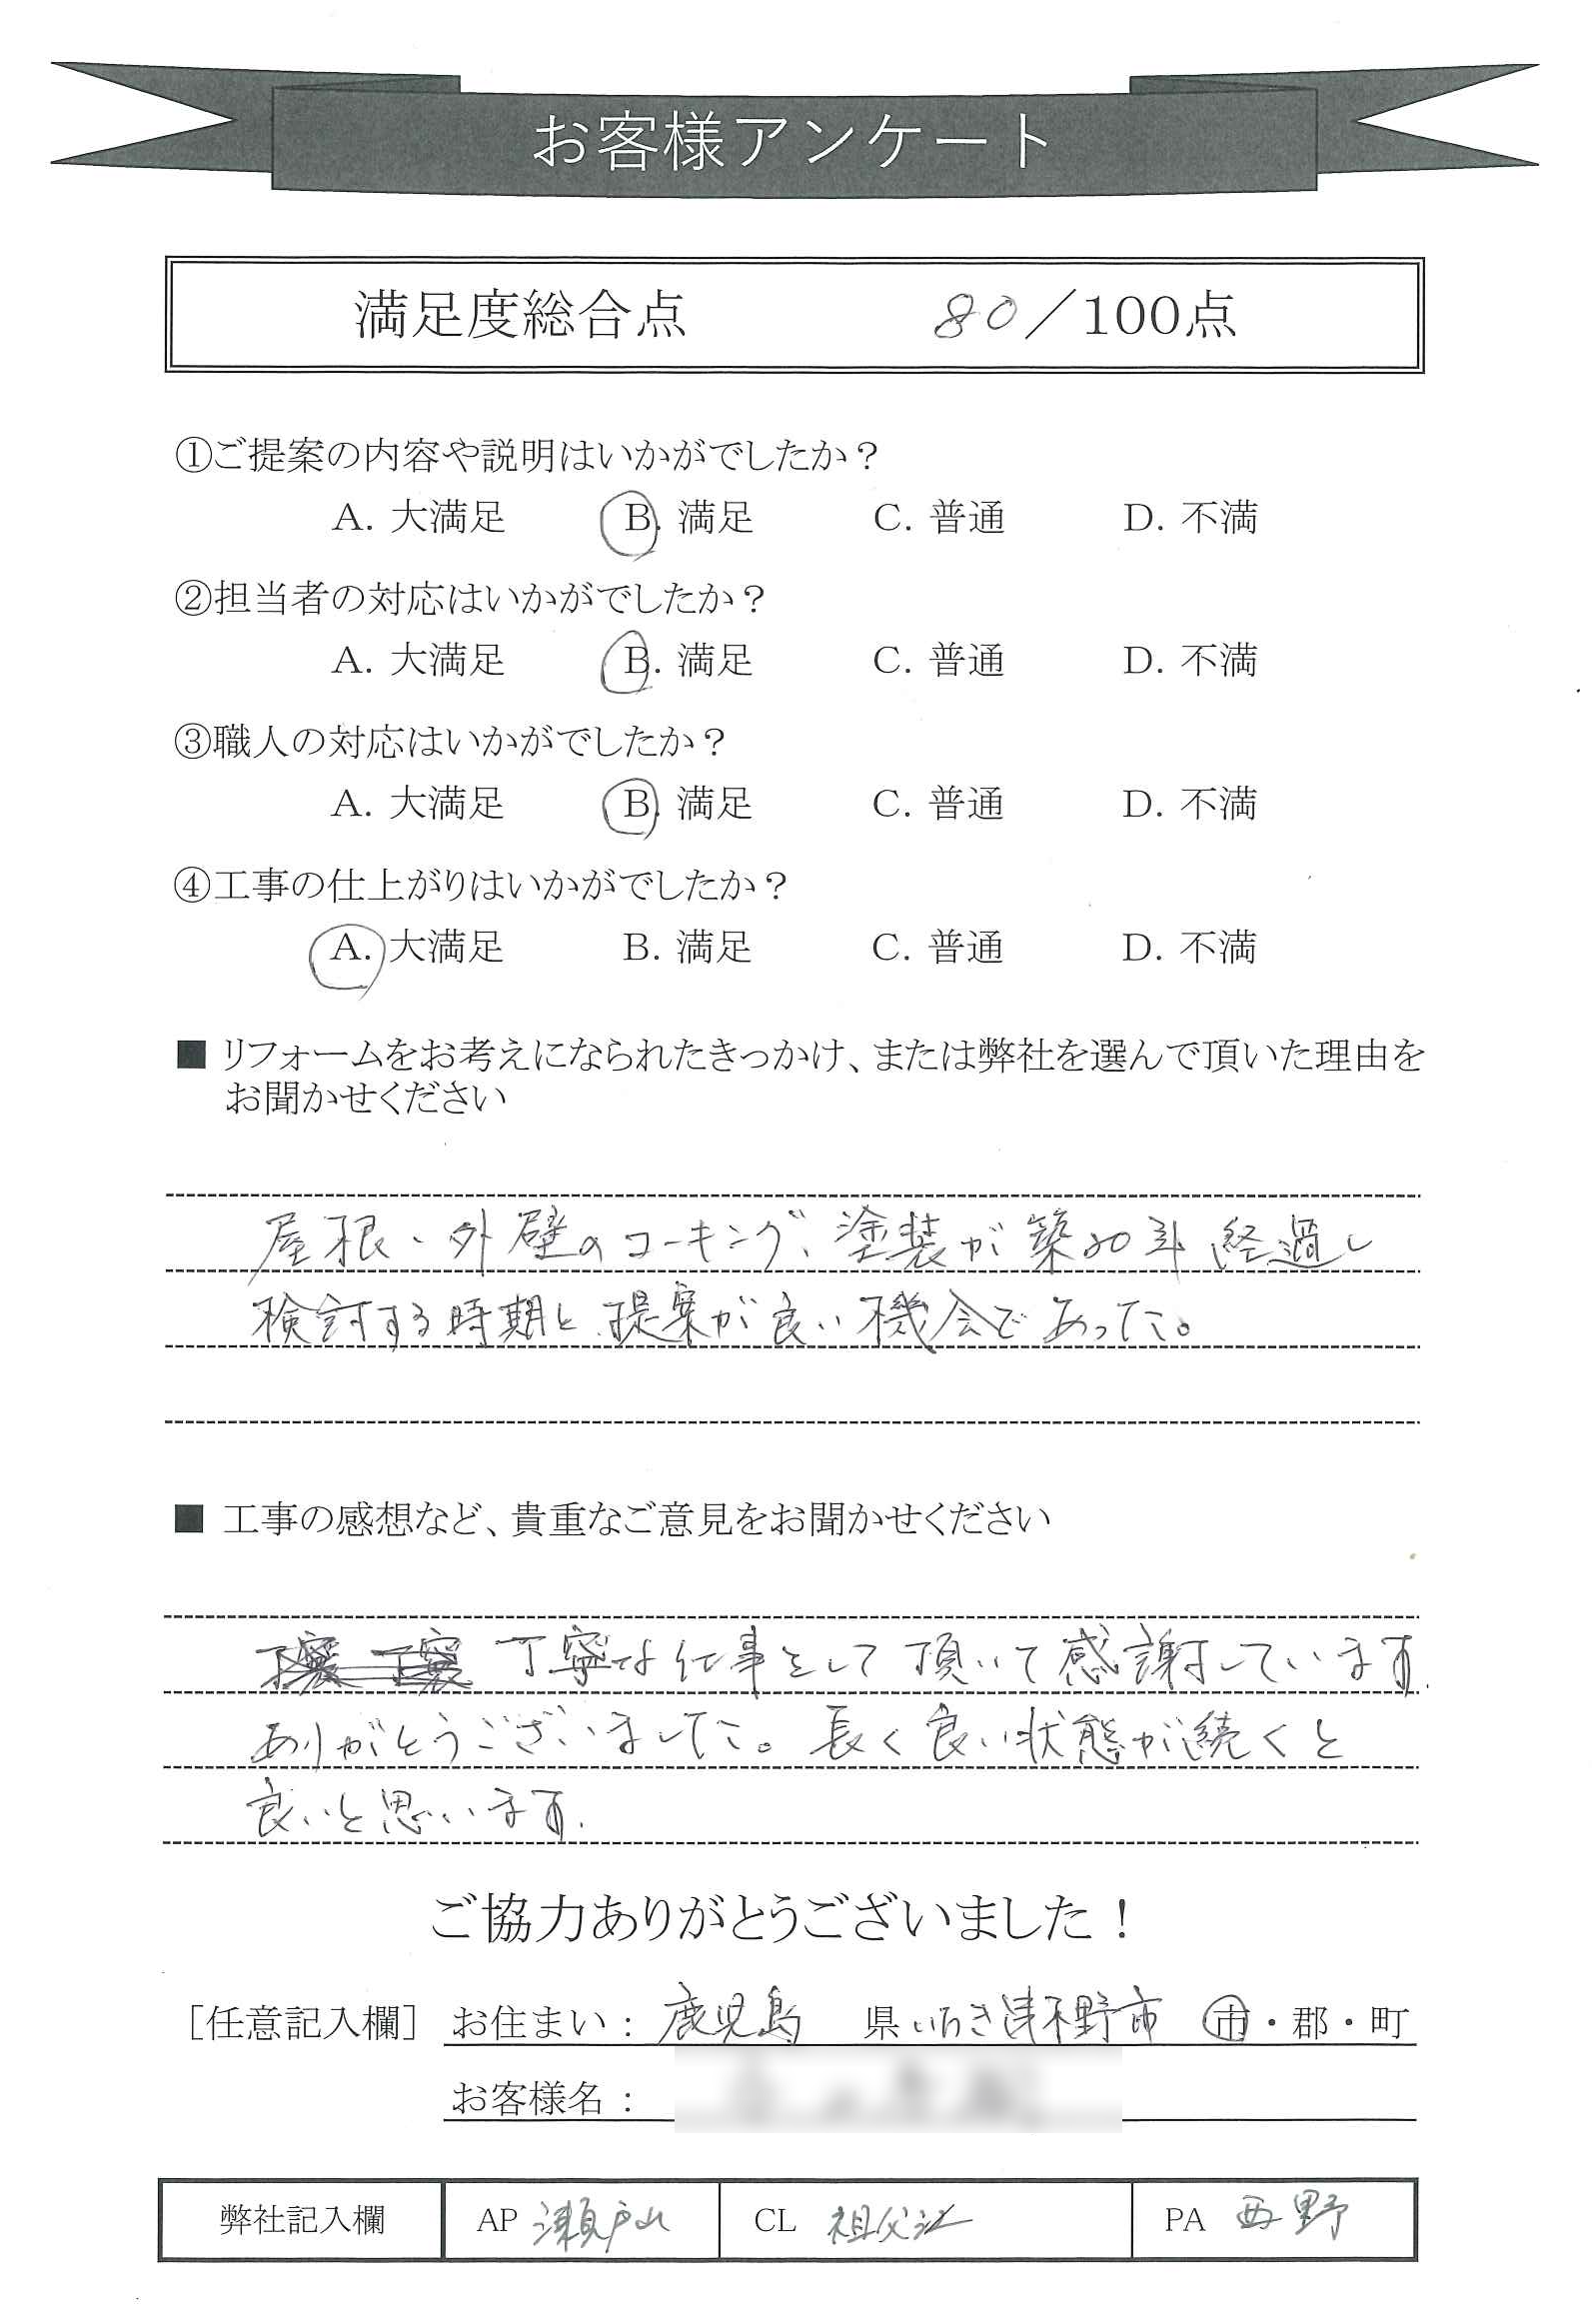 お客様アンケート
満足度総合点 80／100点
①ご提案の内容や説明はいかがでしたか？
A. 大満足 B. 満足 C. 普通 D. 不満
②担当者の対応はいかがでしたか？
A. 大満足 B. 満足 C. 普通 D. 不満
③職人の対応はいかがでしたか？
A. 大満足 B. 満足 C. 普通 D. 不満
④工事の仕上がりはいかがでしたか？
A. 大満足 B. 満足 C. 普通 D. 不満
■ リフォームをお考えになられたきっかけ、または弊社を選んで頂いた理由を
お聞かせください
屋根、外壁のコーキング、塗装が築20年経過し
検討する時期と、提案が良い機会であった。
■ 工事の感想など、貴重なご意見をお聞かせください
丁寧な仕事をして頂いて感謝しています.
ありがとうございました。長く良い状態が続くと
良いと思います.
ご協力ありがとうございました！
［任意記入欄］ お住まい： 鹿児島 県 いちき串木野市 市・郡・町
お客様名：
弊社記入欄 AP 瀬戸山 CL 祖父江 PA 西野